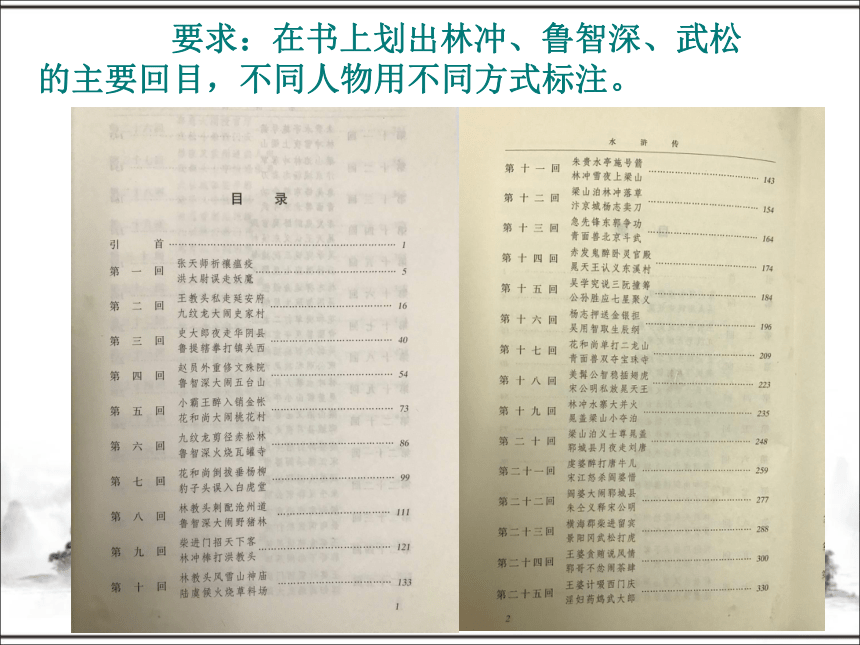 要求：在书上划出林冲、鲁智深、武松
的主要回目，不同人物用不同方式标注。
目 录
引 首 1
第 一 回 张天师祈禳瘟疫
洪太尉误走妖魔 5
第 二 回 王教头私走延安府
九纹龙大闹史家村 16
第 三 回 史大郎夜走华阴县
鲁提辖拳打镇关西 40
第 四 回 赵员外重修文殊院
鲁智深大闹五台山 54
第 五 回 小霸王醉入销金帐
花和尚大闹桃花村 73
第 六 回 九纹龙剪径赤松林
鲁智深火烧瓦罐寺 86
第 七 回 花和尚倒拔垂杨柳
豹子头误入白虎堂 99
第 八 回 林教头刺配沧州道
鲁智深大闹野猪林 111
第 九 回 柴进门招天下客
林冲棒打洪教头 121
第 十 回 林教头风雪山神庙
陆虞候火烧草料场 133
1
水 浒 传
第 十 一 回 朱贵水亭施号箭
林冲雪夜上梁山 143
第 十 二 回 梁山泊林冲落草
汴京城杨志卖刀 154
第 十 三 回 急先锋东郭争功
青面兽北京斗武 164
第 十 四 回 赤发鬼醉卧灵官殿
晁天王认义东溪村 174
第 十 五 回 吴学究说三阮撞筹
公孙胜应七星聚义 184
第 十 六 回 杨志押送金银担
吴用智取生辰纲 196
第 十 七 回 花和尚单打二龙山
青面兽双夺宝珠寺 209
第 十 八 回 美髯公智稳插翅虎
宋公明私放晁天王 223
第 十 九 回 林冲水寨大并火
晁盖梁山小夺泊 235
第 二 十 回 梁山泊义士尊晁盖
郓城县月夜走刘唐 248
第二十一回 虔婆醉打唐牛儿
宋江怒杀阎婆惜 259
第二十二回 阎婆大闹郓城县
朱仝义释宋公明 277
第二十三回 横海郡柴进留宾
景阳冈武松打虎 288
第二十四回 王婆贪贿说风情
郓哥不忿闹茶肆 300
第二十五回 王婆计啜西门庆
淫妇药鸩武大郎 330
2